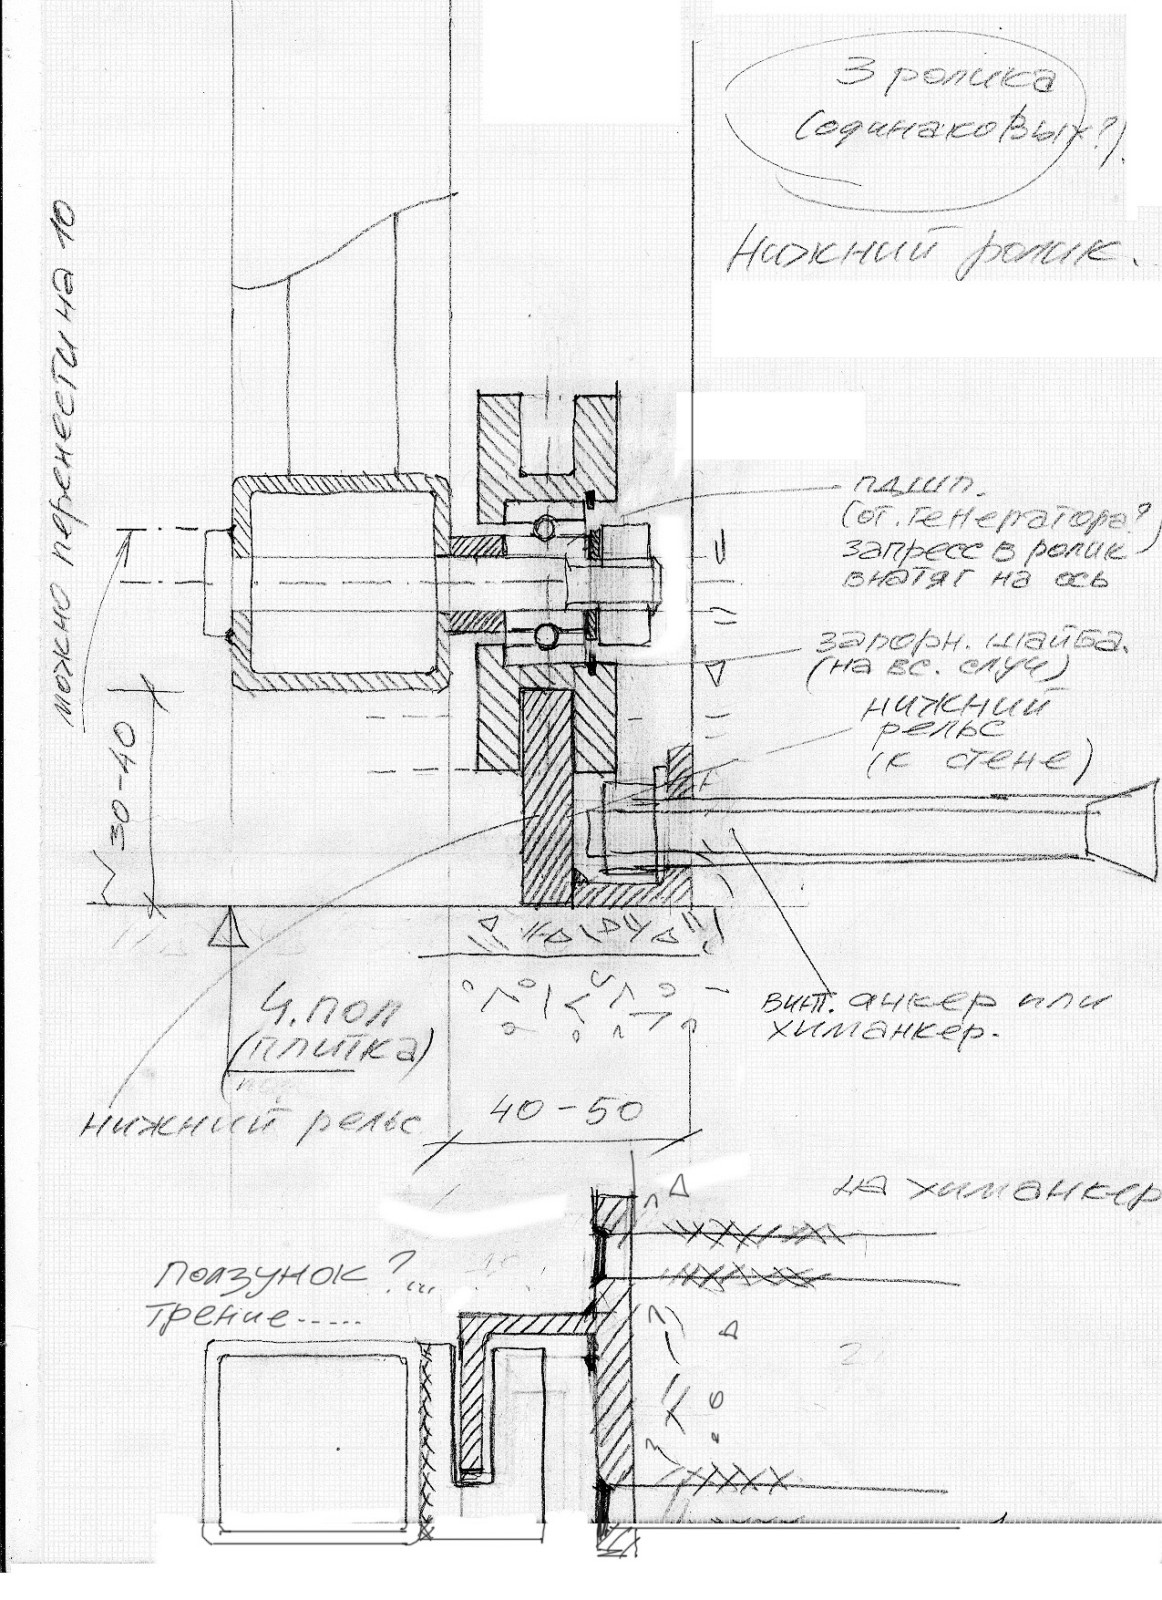 3 ролика
(одинаковых?)
Нижний ролик.
можно перенести на 10
пдшп.
(от. генератора?)
запресс в ролик
внатяг на ось
запорн. шайба.
(на вс. случ)
нижний
рельс
(к стене)
30-40
ч. пол
(плитка)
винт. анкер или
химанкер.
нижний рельс
40-50
на химанкер
ползунок?...
трение.....